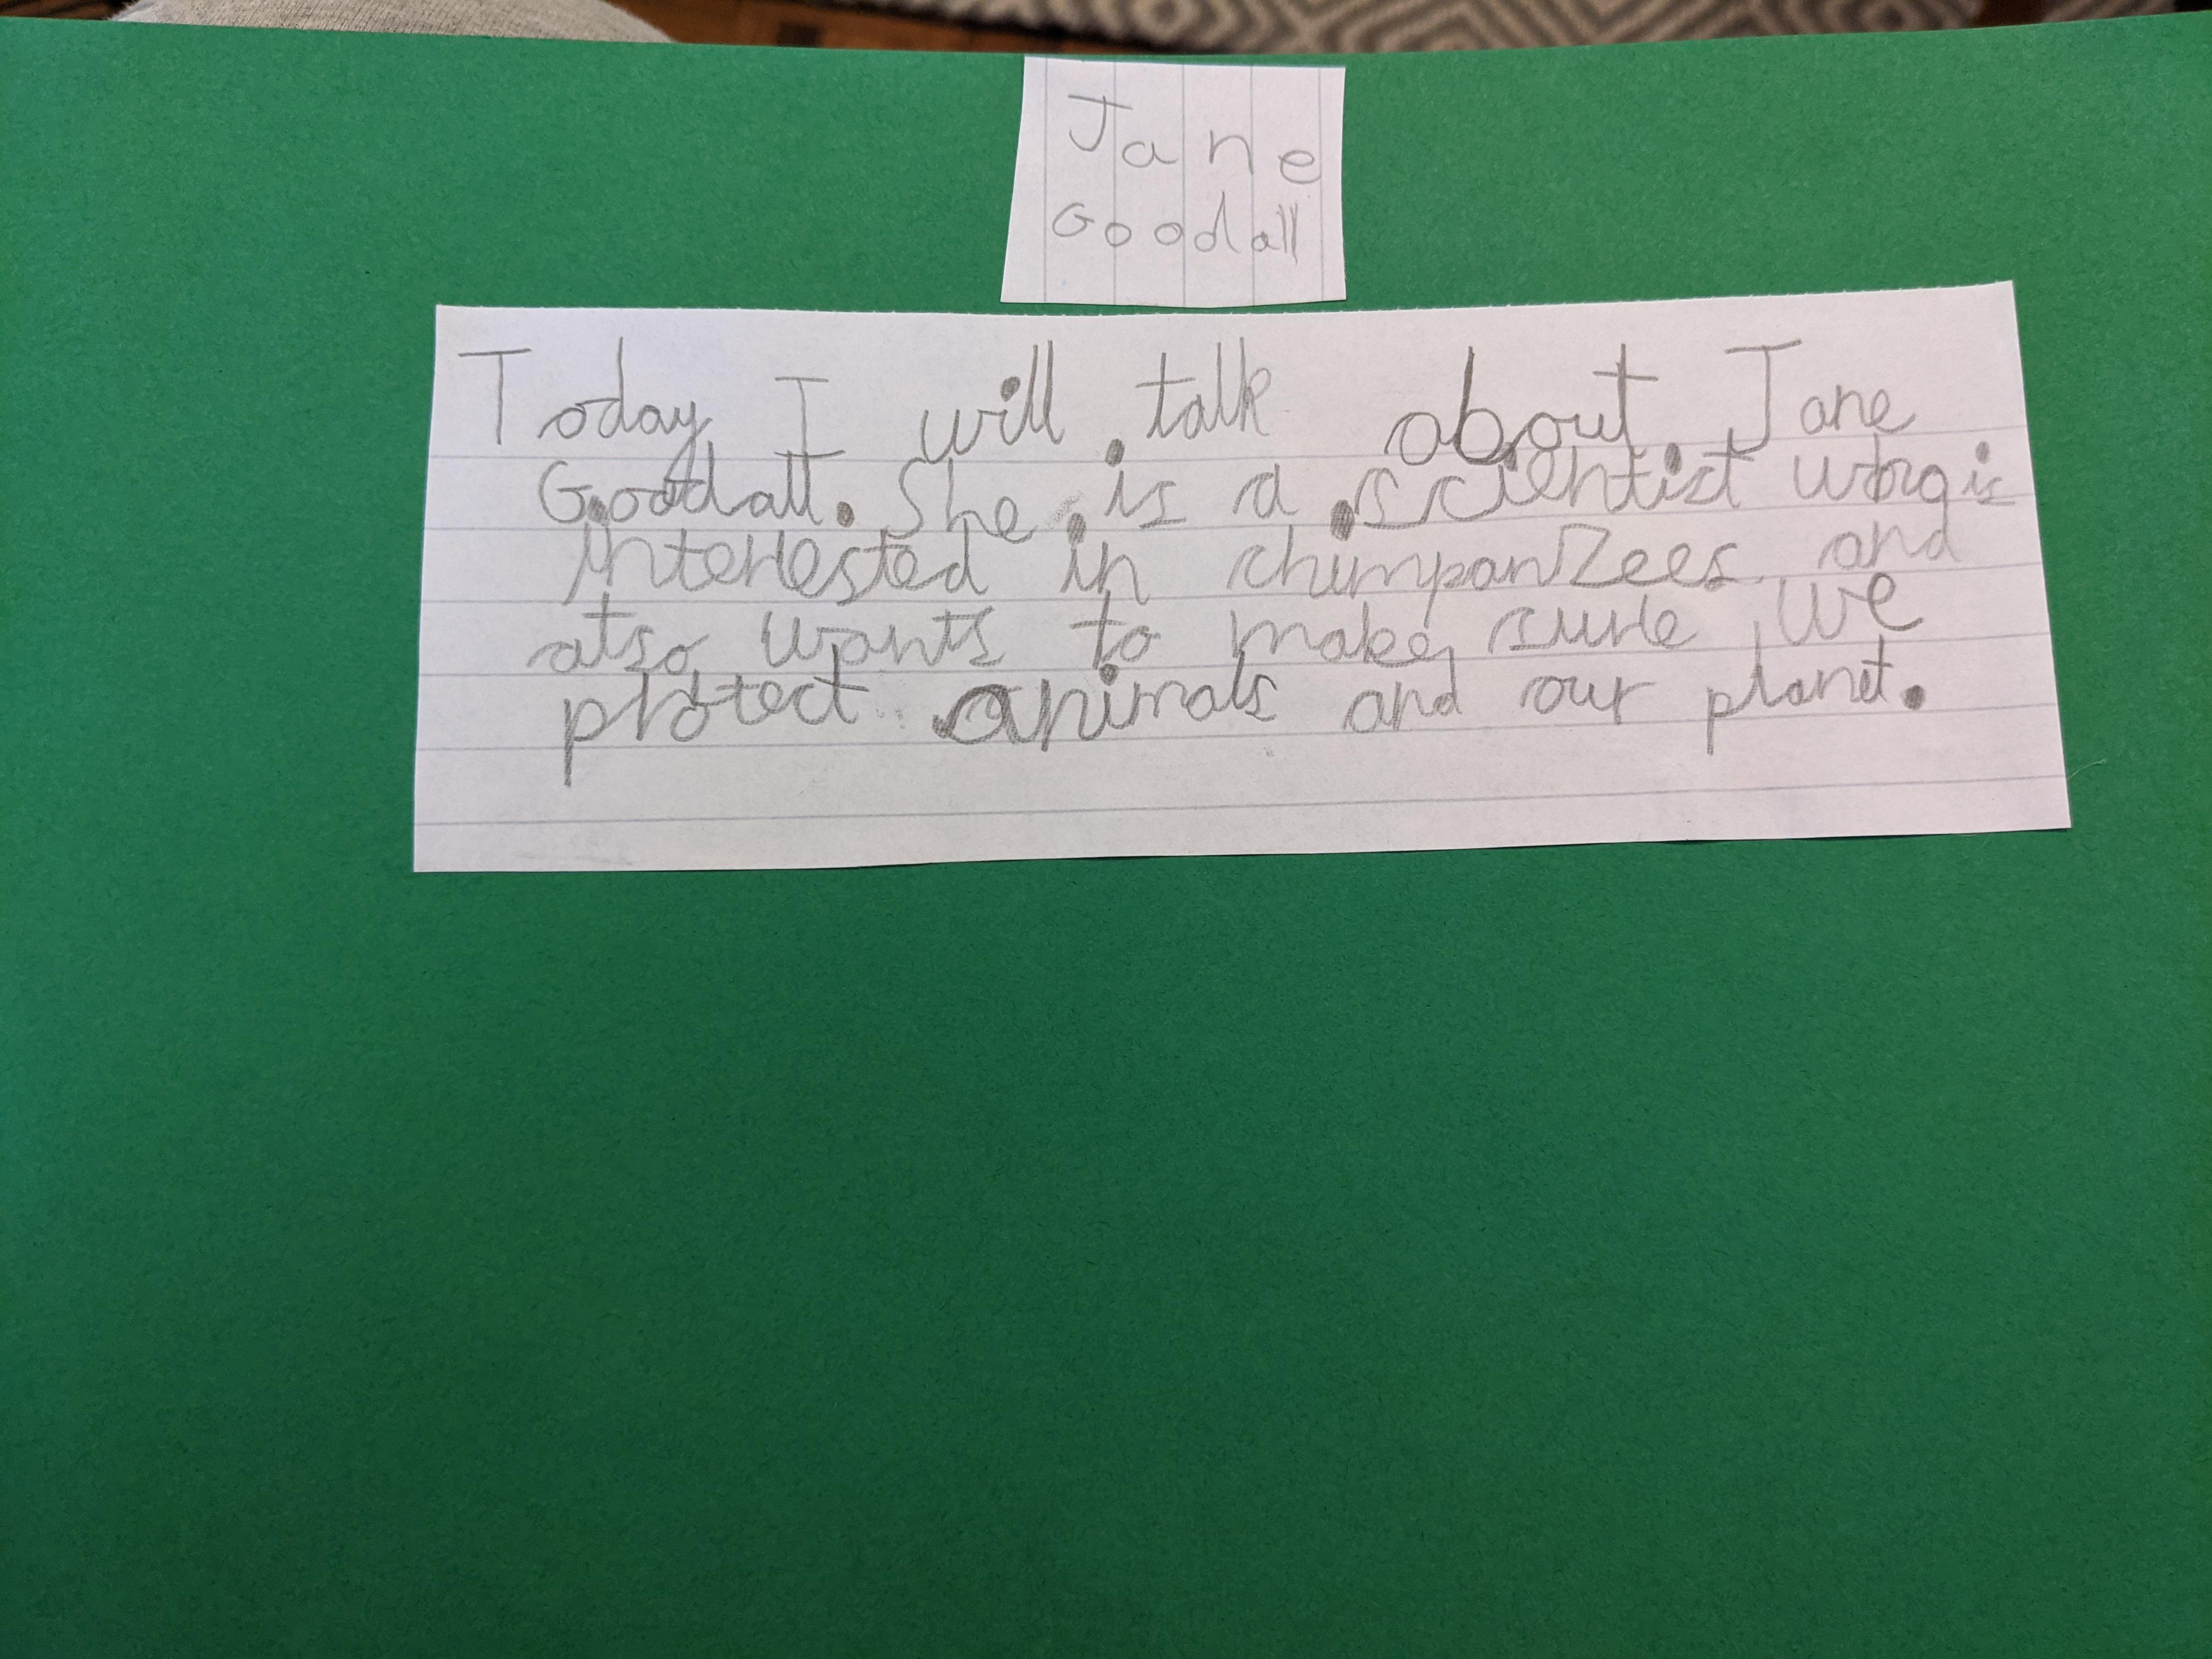 Jane
Goodall
Today I will talk about Jane
Goodall. She is a scientist who is
interested in chimpanzees and
also wants to make sure we
protect animals and our planet.